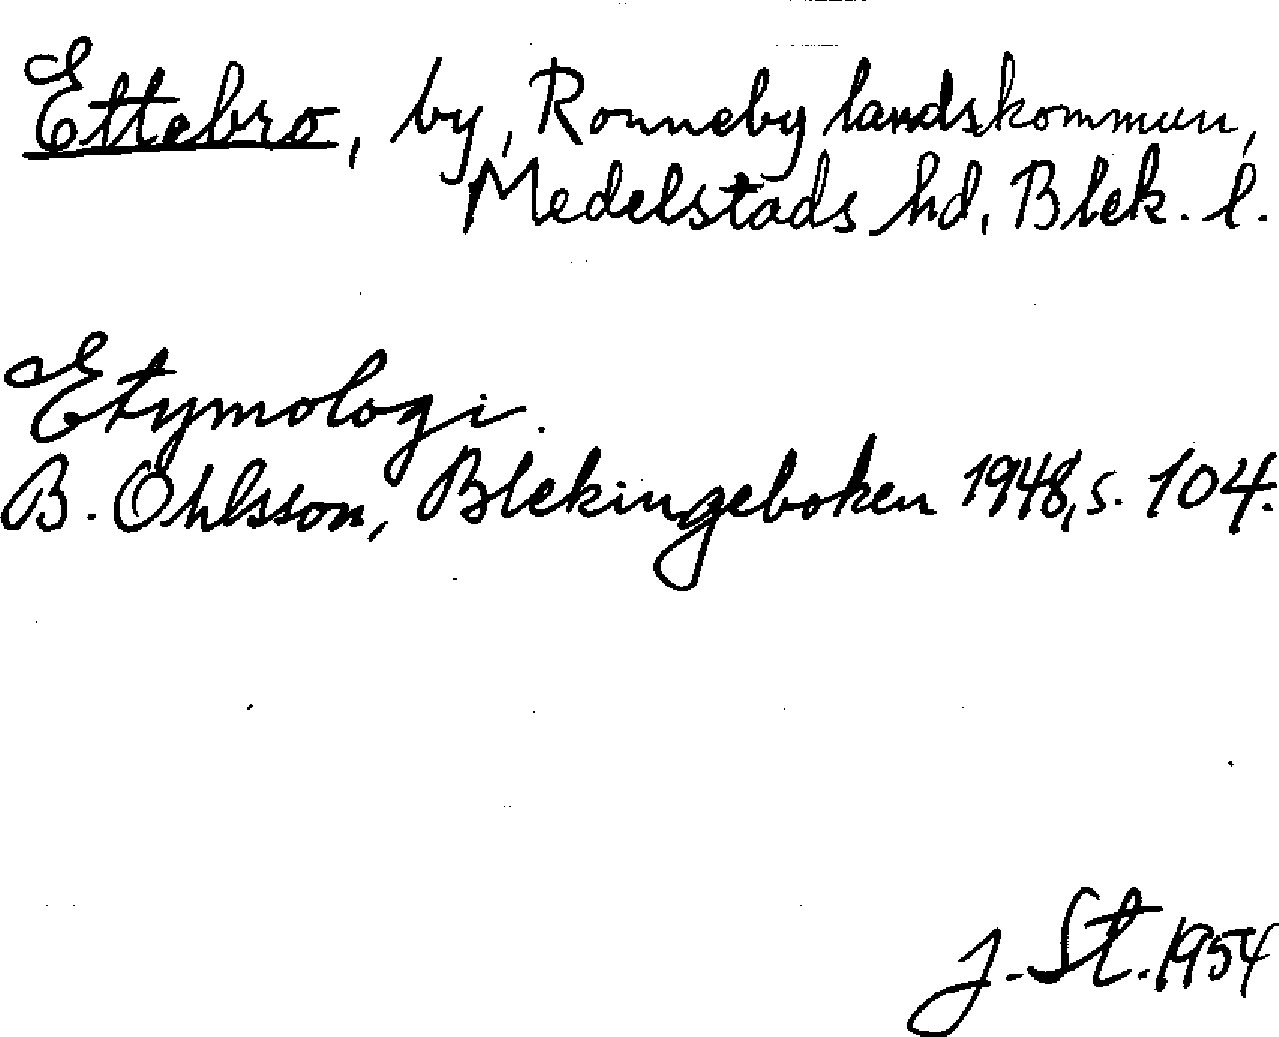 Ettebro, by, Ronneby landskommun,
Medelstads hd, Blek. l.
Etymologi.
B. Ohlsson, Blekingeboken 1948, s. 104.
J. St. 1954